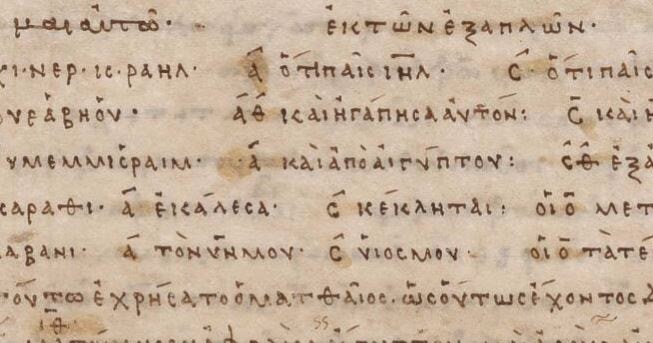 μαιἀυτῶ· ἐκτῶνἑξαπλῶν·
χι·νερ·ισ·ραηλ· ἀ ὅτιπαῖσιηλ· ς ὅτιπαῖς
ουεάβηου· ἀθ καὶηγάπησααὐτόν: ς καὶη
υμεμμισραιμ· ἀ καὶἀπὸἀιγύπτου: ςθ ἐξα
καραθι· ἀ ἐκάλεσα· ς κέκληται: οἱο μετ
λαβανι· ἀ τὸνυνμου· ς υἱοσμου· οἱο τὰτέ
τούτωἐχρήσατοὁματθαῖος· ὡσοὕτωσἔχοντος